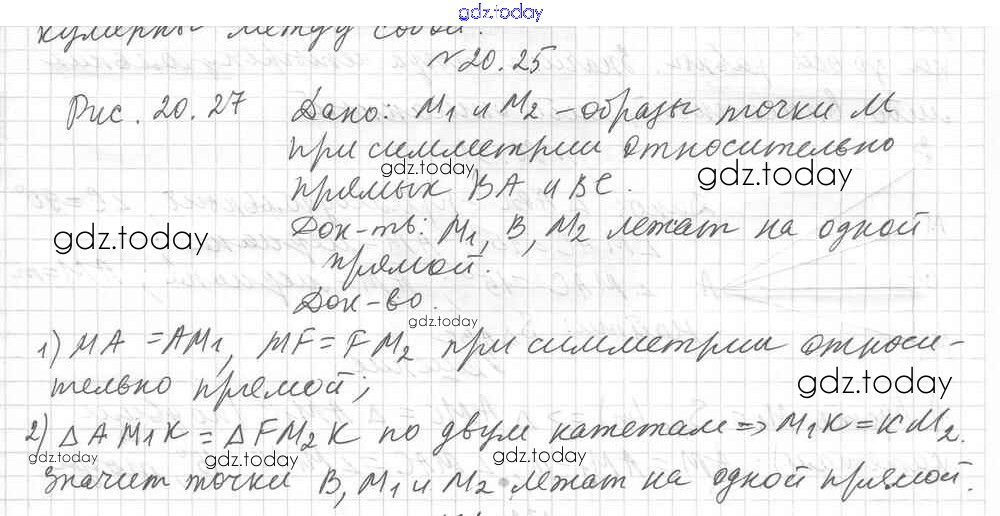 gdz.today
кулярны между собой.
№20.25
Рис. 20.27 Дано: M₁ и M₂ – образы точки M
при симметрии относительно
gdz.today
прямых BA и BC.
gdz.today
Док-ть: M₁, B, M₂ лежат на одной
gdz.today
прямой.
Док-во.
gdz.today
1) MA = AM₁, MF = FM₂ при симметрии относи-
тельно прямой;
gdz.today
2) △AM₁K = △FM₂K по двум катетам ⇒ M₁K = KM₂.
gdz.today gdz.today gdz.today
Значит точки B, M₁ и M₂ лежат на одной прямой.